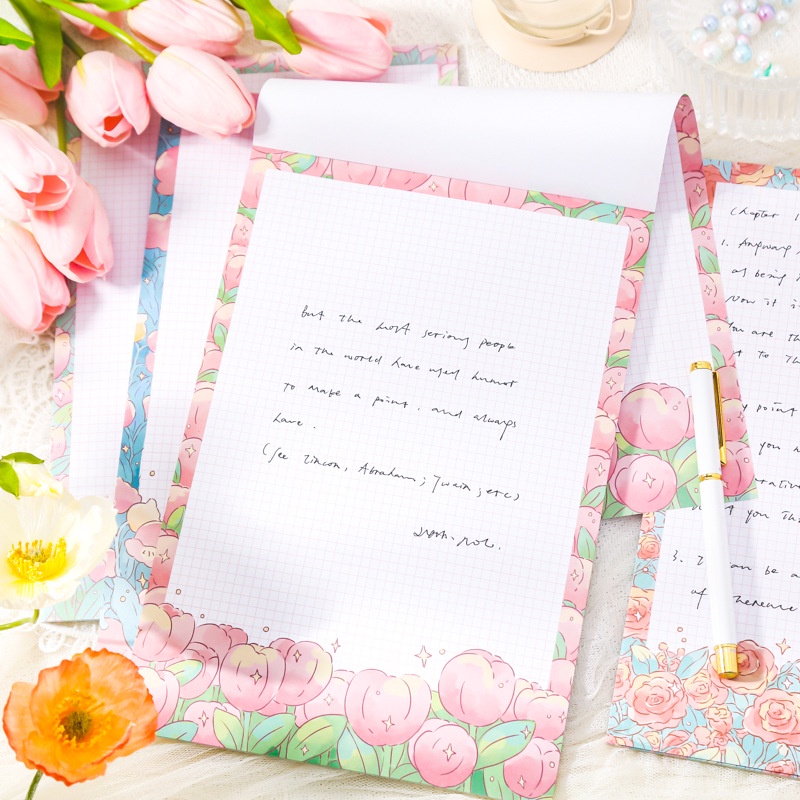 but the most serious people
in the world have used humor
to make a point, and always
have.
(See Lincoln, Abraham; Twain, etc)
Chapter 1
1.
of being
Now it i
You are th
t to Th
y point
you n
rative
t you Thi
3. I can be a
of